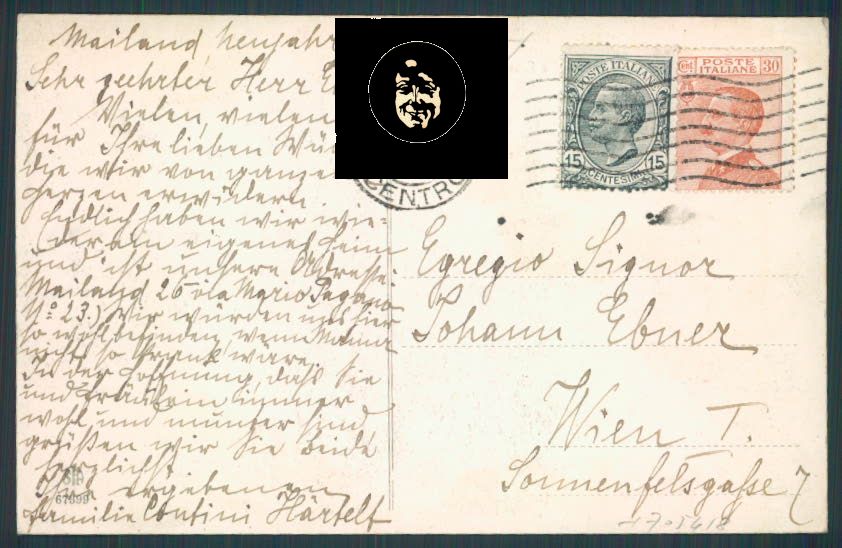 Mailand, Neujahr
Sehr geehrter Herr E
Vielen, vielen
für Ihre lieben Wü
die wir von ganze
Herzen erwidern.
Endlich haben wir wie-
der ein eigenes Heim
und ist unsere Adresse:
Mailand 26 via Mario Pagano
No 23.) Wir würden uns hier
so wohl befinden, wenn Mama
nicht so krank wäre.
In der Hoffnung, daß Sie
und Fräulein immer
wohl und munter sind
grüßen wir Sie beide
herzlichst
Ihre ergebenen
Familie Contini Härtelt
67099
CENTRO
POSTE ITALIANE
15 15
CENTESIMI
Cent. POSTE 30
ITALIANE
Egregio Signor
Johann Ebner
Wien I.
Sonnenfelsgasse 7